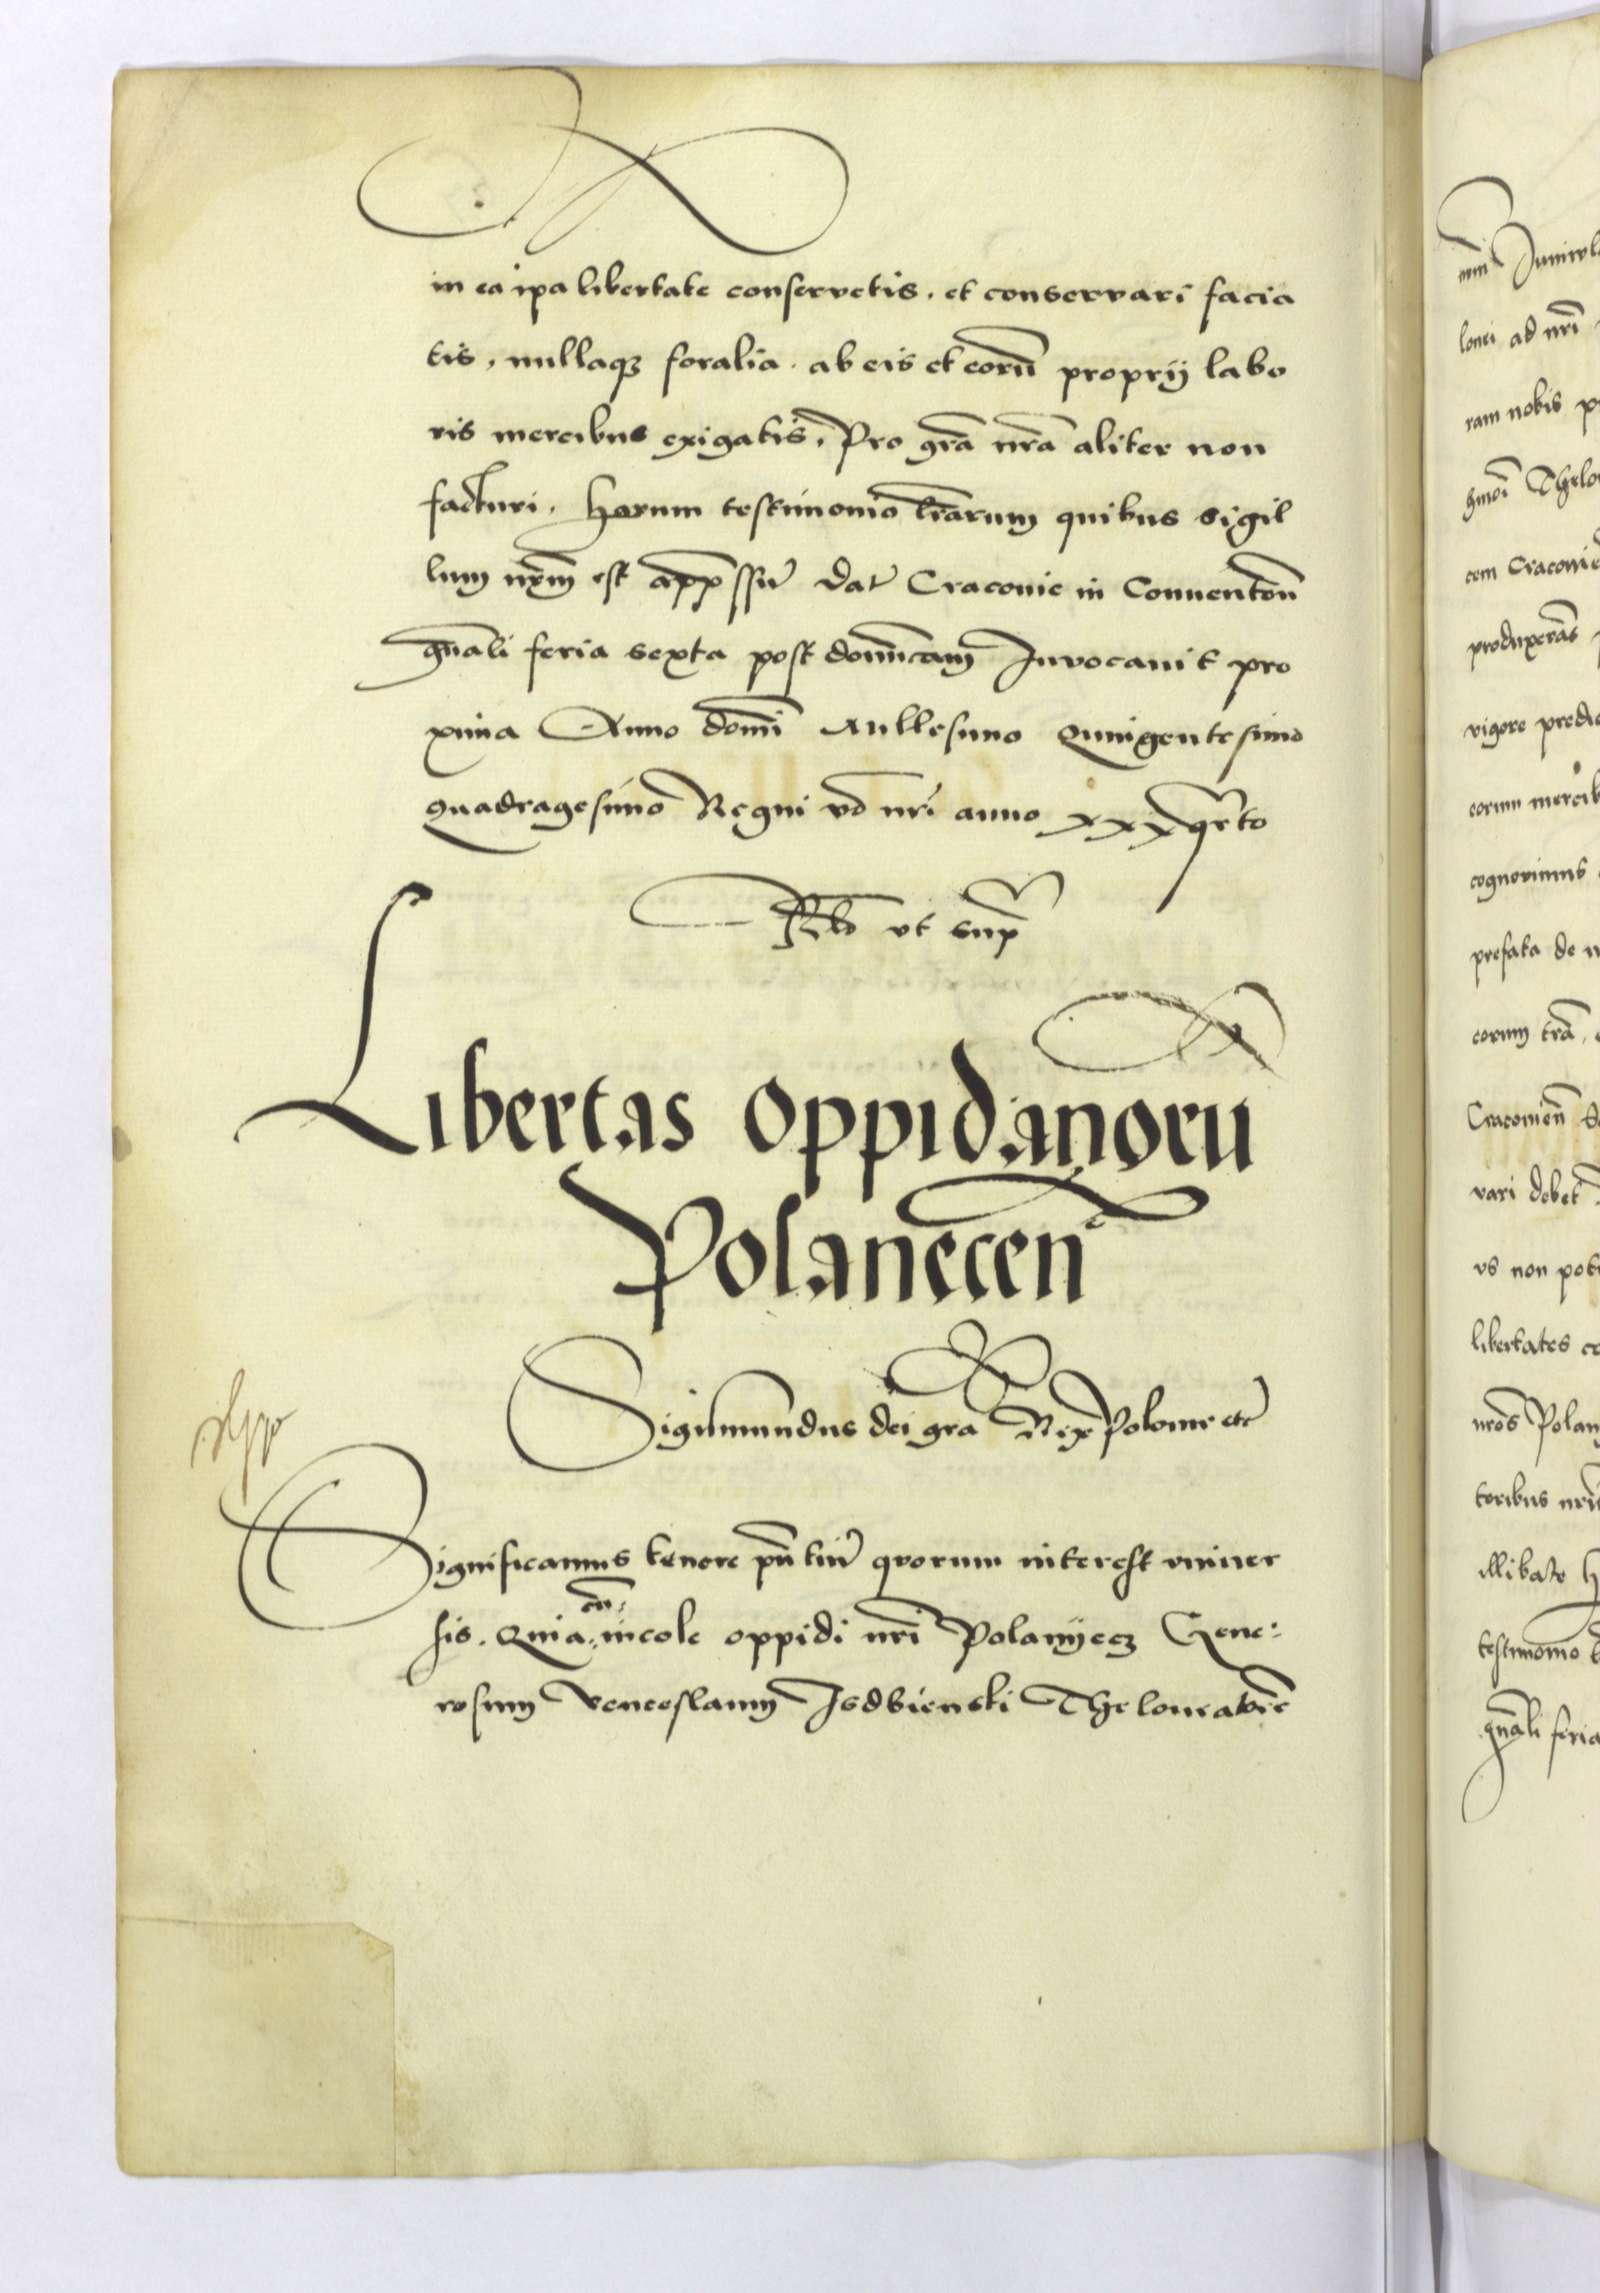 in ea ipa libertate conservetis, et conservari facia
tis, nullaqȝ foralia ab eis et eorū proprij labo
ris mercibus exigatis, Pro grā nrā aliter non
facturi, Harum testimonio lrārum quibus sigil
lum nrm̄ est appssū dat Cracovie in Conuentoñ
gnāli feria sexta post domīcam Invocauit pro
xima Anno domī Millesimo Quingentesimo
quadragesimo Regni vō nrī anno xxxqrto
Rlō vt supȓ
Libertas oppidanoru
Polanecen
Sigismundus dei gra Rex Polonie etc
Significamus tenore pn̄tiū quorum interest vniuer
sis. Quia cū incole oppidi nrī Polanyecz Gene:
rosum Venceslaum Isdbienski Theloneatorē
num
lonei ad nrī
ram nobis
hmōi Thelo
cem Cracovie
produxerās
vigore predic
eorum mercib
cognovimus
prefata de
eorum trā,
Cracovien̄
vari debet
vs non pot
libertates
nrōs Polan
toribus nrī
illibate H
testimonio
gnāli feria